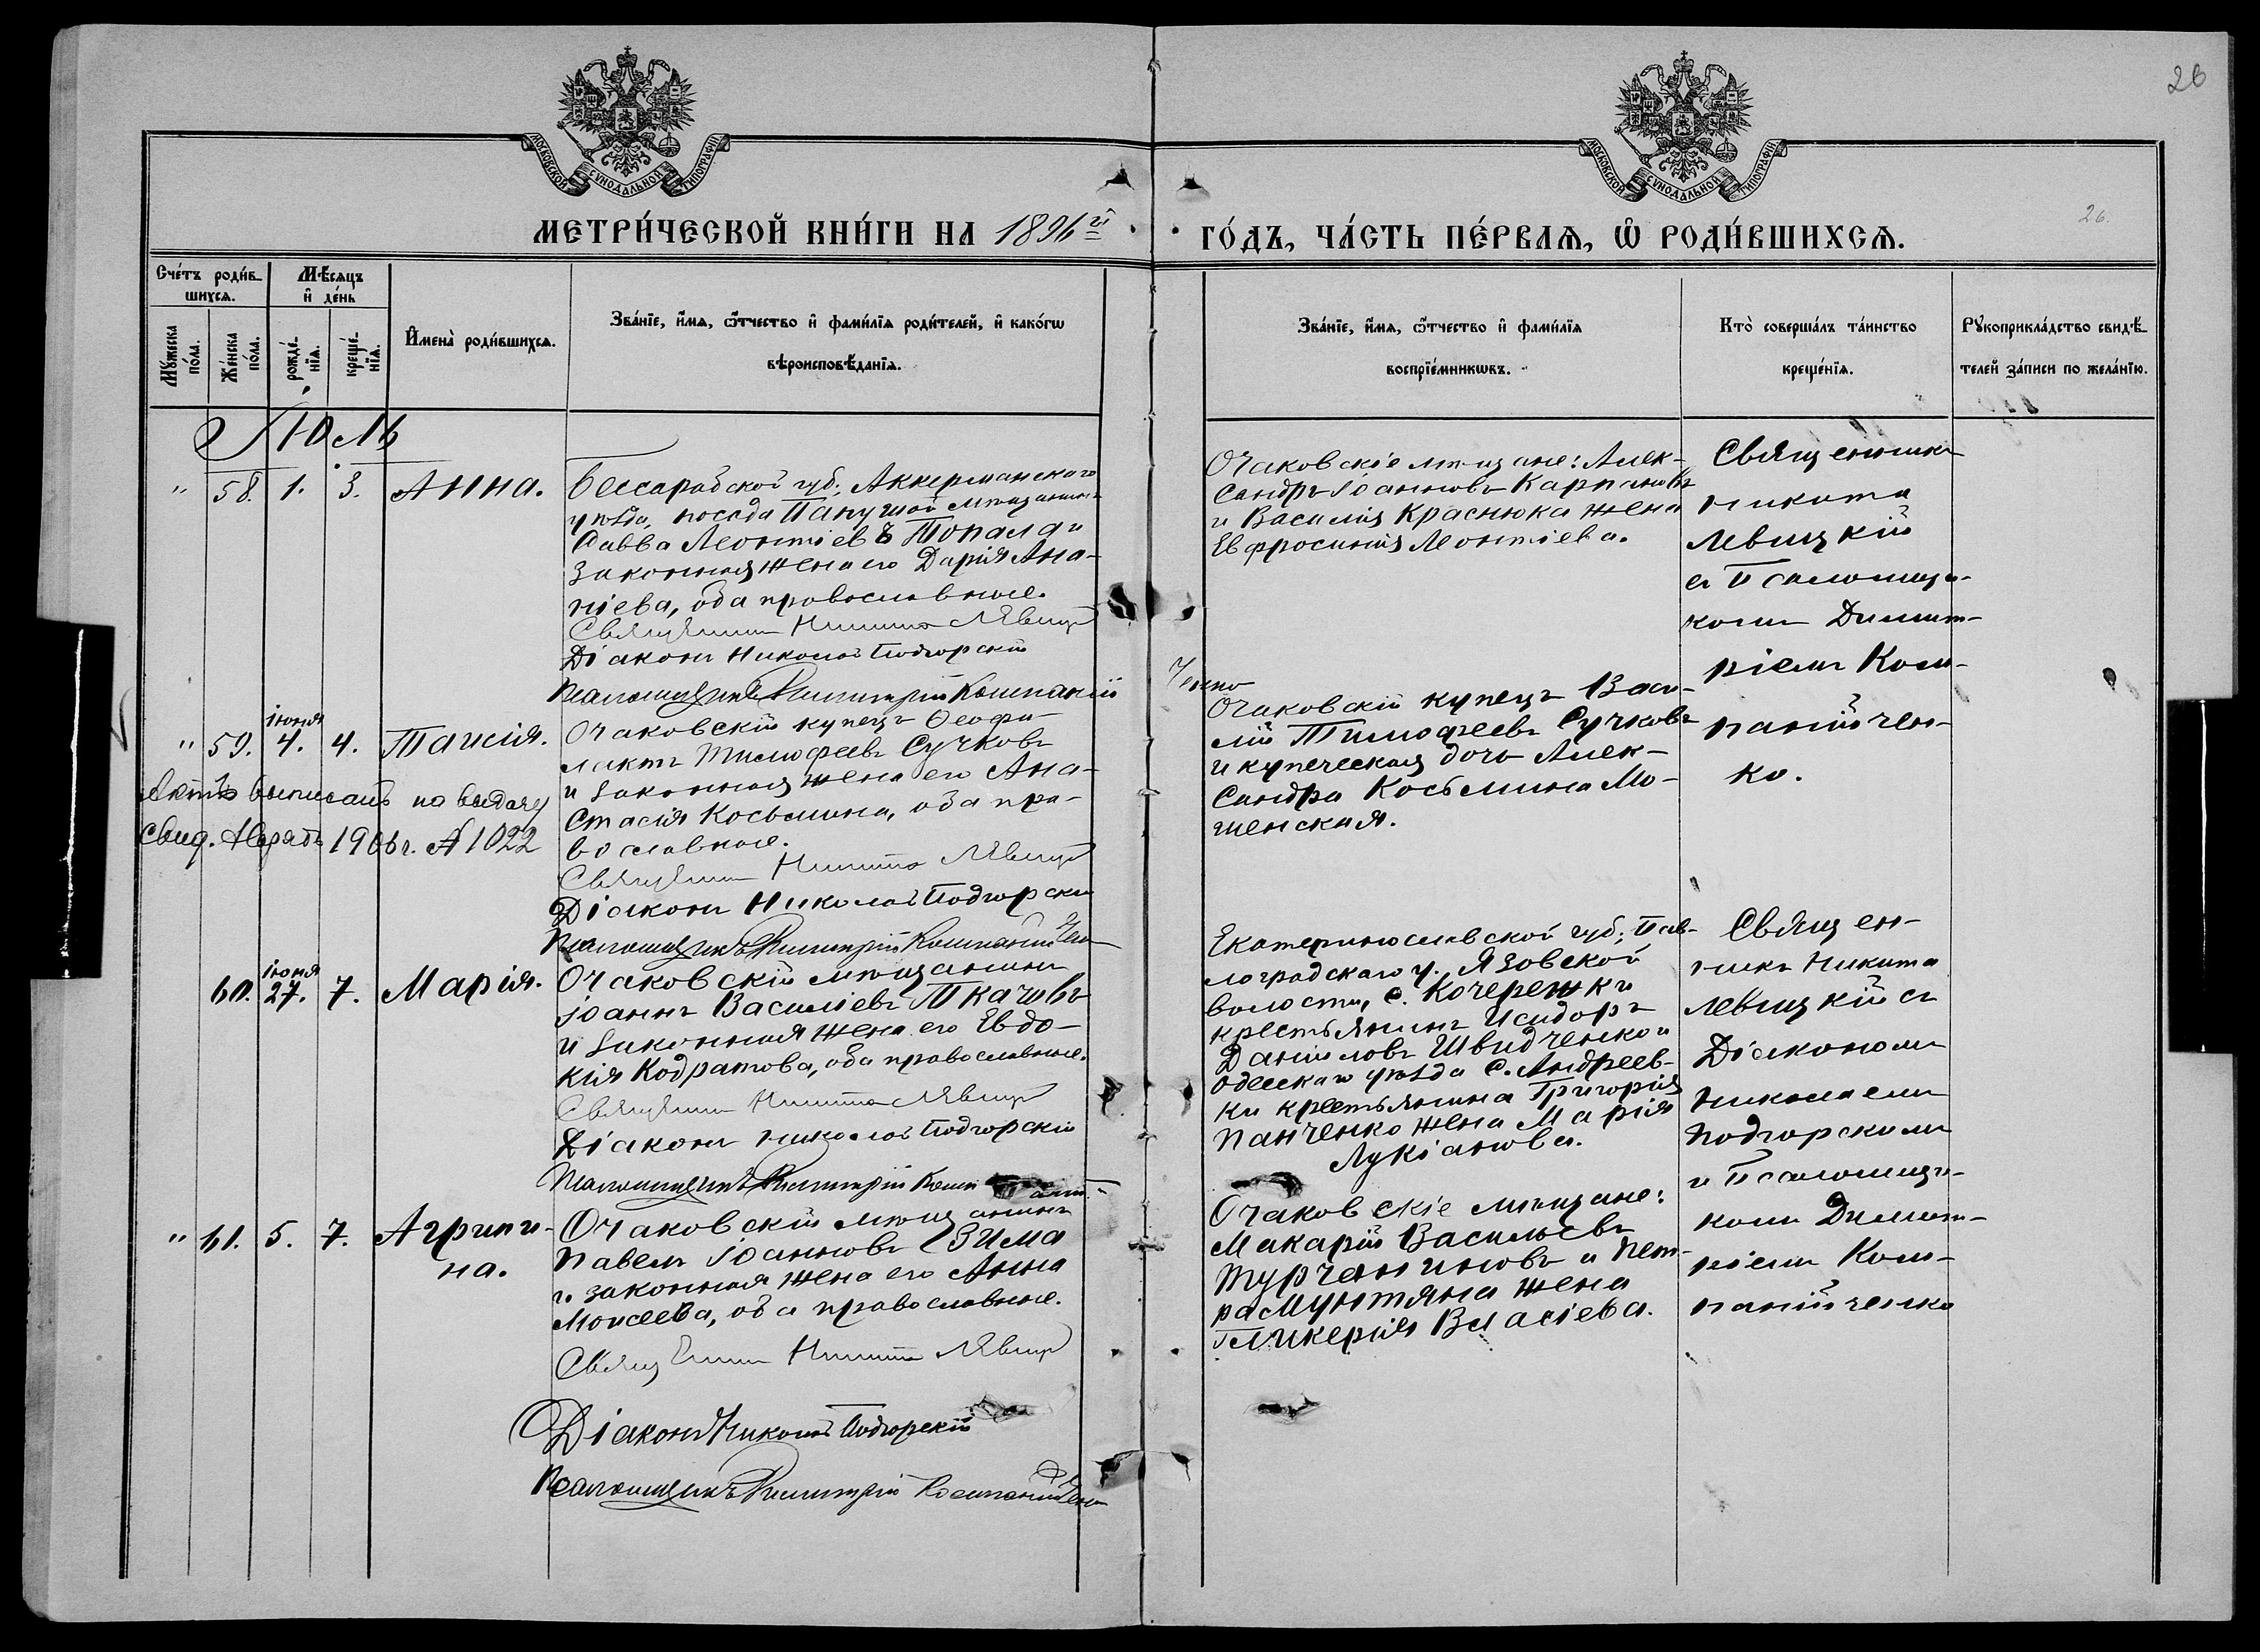 26
МОСКОВСКОЙ СѴНОДАЛЬНОЙ ТИПОГРАФІИ
МОСКОВСКОЙ СѴНОДАЛЬНОЙ ТИПОГРАФІИ
МЕТРИ́ЧЕСКОЙ КНИ́ГИ НА 1896й
ГО́ДЪ, ЧА́СТЬ ПЕ́РВАѦ, Ѡ РОДИ́ВШИХСѦ.
26.
Сче́тъ роди́в-
шихсѧ.
Мѣ́сѧцъ
и҆ де́нь
Мꙋ́жеска
по́ла.
Же́нска
по́ла.
рожде́-
нїѧ.
креще́-
нїѧ.
И҆мена̀ роди́вшихсѧ.
Зва́нїе, и҆́мѧ, ѻ҆́тчество и҆ фами́лїѧ роди́телей, и҆ како́гѡ
вѣроисповѣ́данїѧ.
Зва́нїе, и҆́мѧ, ѻ҆́тчество и҆ фами́лїѧ
воспрїе́мникѡвъ.
Кто̀ соверша́лъ та́инство
креще́нїѧ.
Рꙋкоприкла́дство свидѣ́-
телей за́писи по жела́нїю.
Іюль
" 58. 1. 3. Анна.
Бессарабской губ., Аккерманскаго
уѣзда, посада Папушой мѣщанинъ
Савва Леонтіевъ Топала и
законная жена его Дарія Ана-
ніева, оба православные.
Священникъ Никита Левицкій
Діаконъ Николай Подгорскій
Псаломщикъ Димитрій Компаній
ченко
Очаковскіе мѣщане: Алек-
сандръ Іоанновъ Карпановъ
и Василія Краснюка жена
Евфросинія Леонтіева.
Священникъ
Никита
Левицкій
съ Псаломщи-
комъ Димит-
ріемъ Ком-
панійчен-
ко.
" 59. іюня 4. 4. Таисія.
Актъ выписанъ на выдачу
свид. 1906 г. № 1022
Очаковскій купецъ Ѳеофи-
лактъ Тимофеевъ Сучковъ
и законная жена его Ана-
стасія Косьмина, оба пра-
вославные.
Священникъ Никита Левицкій
Діаконъ Николай Подгорскій
Псаломщикъ Димитрій Компанійченко
Очаковскій купецъ Васи-
лій Тимофеевъ Сучковъ
и купеческая дочь Алек-
сандра Косьмина Мо-
шенская.
60. іюня 27. 7. Марія.
Очаковскій мѣщанинъ
Іоаннъ Василіевъ Ткачовъ
и законная жена его Евдо-
кія Кодратова, оба православные.
Священникъ Никита Левицкій
Діаконъ Николай Подгорскій
Псаломщикъ Димитрій Комп
Екатеринославской губ., Пав-
лоградскаго у. Язовской
волости, с. Кочережки
крестьянинъ Исидоръ
Даніиловъ Швидченко и
Одесскаго уѣзда с. Андреев-
ки крестьянина Григорія
Панченко жена Марія
Лукіанова.
Священ-
никъ Никита
Левицкій съ
Діакономъ
Николаемъ
Подгорскимъ
и Псаломщи-
комъ Димит-
ріемъ Ком-
панійченко
" 61. 5. 7. Агрипи-
на.
Очаковскій мѣщанинъ
Павелъ Іоанновъ Зима
и законная жена его Анна
Моисеева, оба православные.
Священникъ Никита Левицкій
Діаконъ Николай Подгорскій
Псаломщикъ Димитрій Компанійченко
Очаковскіе мѣщане:
Макарій Васильевъ
Турчениновъ и Пет-
ра Мунтяна жена
Гликерія Власіева.